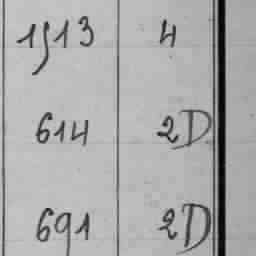 1513 4
614 2D
691 2D